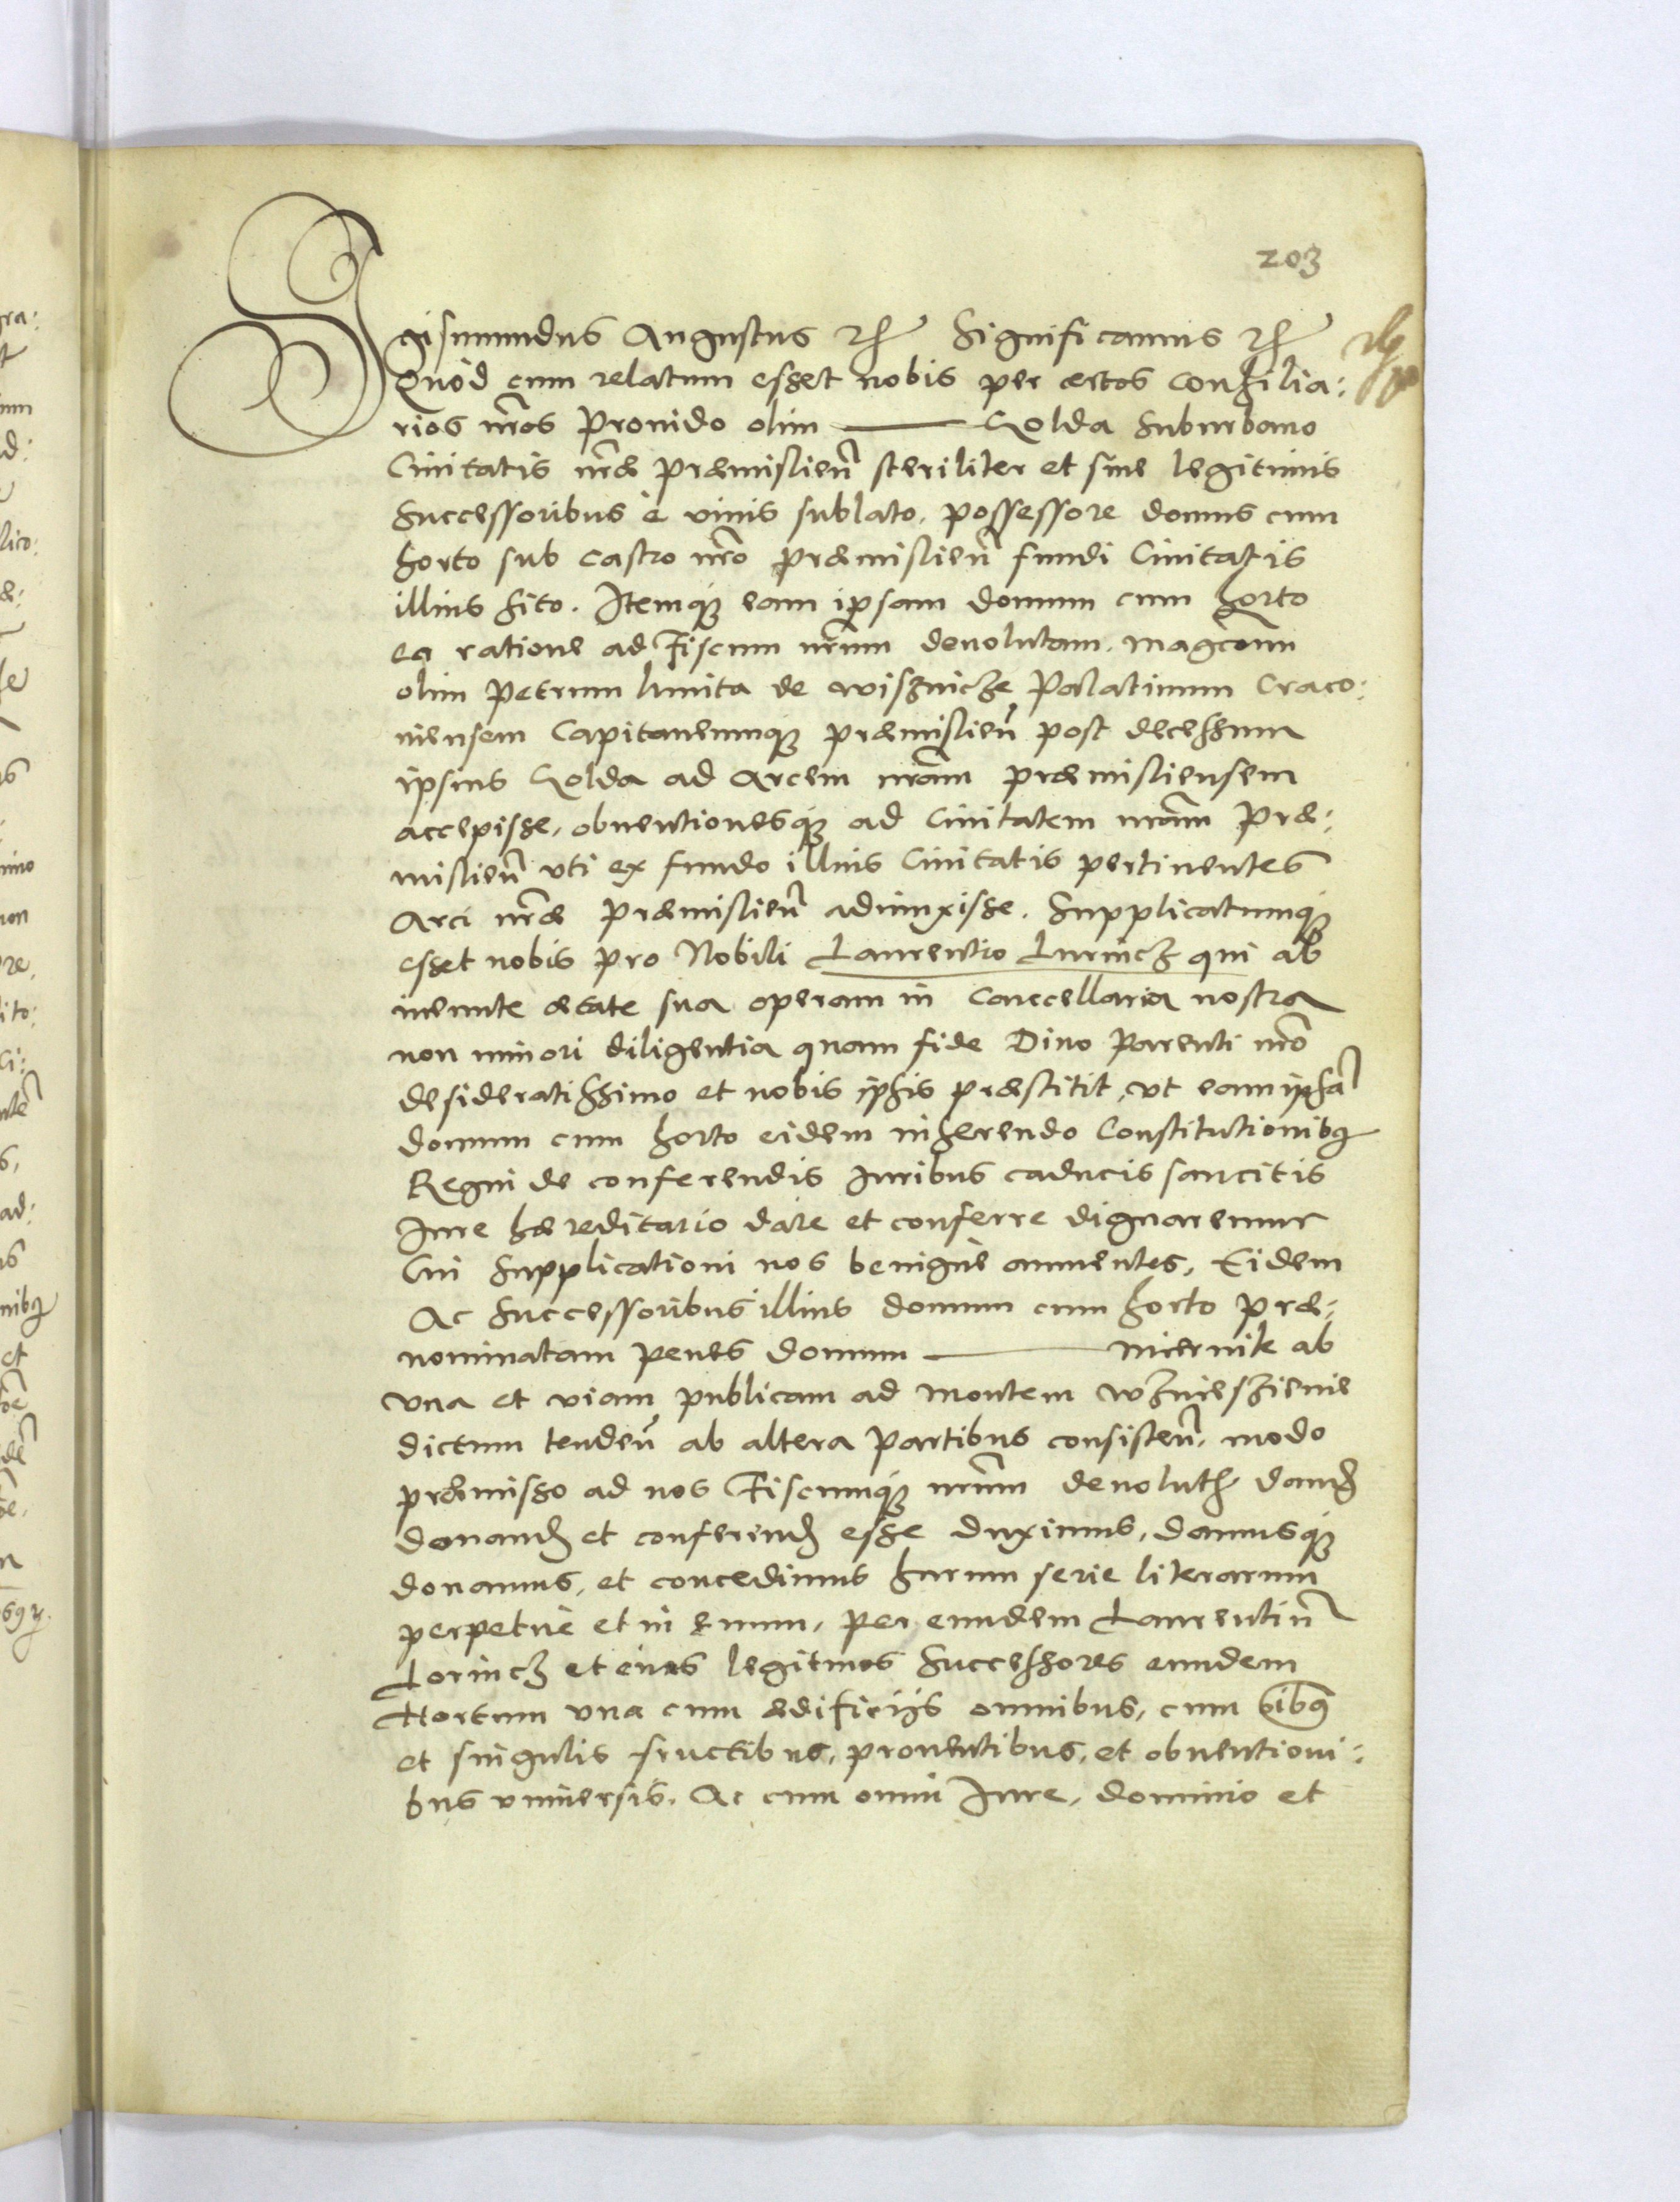 203
Sigismundus Augustus etc Significamus etc
Quòd cum relatum esset nobis per certos consilia:
rios nr̃os Prouido olim —— Golda suburbano
Ciuitatis nr̃æ Præmislieñ steriliter et sine legitimis
Successoribus è viuis sublato, possessore domus cum
horto sub castro nr̃o præmislieñ fundi Ciuitatis
illius sito. Itemq́ eam ipsam domum cum horto
ea ratione ad Fiscum nr̃um deuolutam, magcum
olim Petrum kmita de wisznicze Palatinum Craco:
niensem Capitaneumq́ præmislieñ post decessum
ipsius Golda ad arcem nr̃am præmisliensem
accepisse, obuentionesq́ ad Ciuitatem nr̃am Præ:
mislieñ vti ex fundo illius Ciuitatis pertinentes
Arci nr̃æ Præmislieñ adiunxisse. Supplicatumq́
esset nobis pro Nobili Laurentio Lurincz qui ab
ineunte ætate sua operam in Cancellaria nostra
non minori diligentia quam fide Diuo Parenti nr̃o
desideratissimo et nobis ipsis præstitit, vt eam ipsã
domum cum horto eidem inherendo Constitutionibq
Regni de conferendis Iuribus caducis sancitis
Iure hæreditario dare et conferre dignaremur
Cui Supplicationi nos benignè annuentes, Eidem
Ac Successoribus illius domum cum horto præ:
nominatam penes domum —— Miernik ab
vna et viam publicam ad montem wznieszienie
dictum tendeñ ab altera partibus consisteñ, modo
præmisso ad nos Fiscumq́ nr̃um deuolut dand
donand et conferend esse duximus, damusq́
donamus, et concedimus harum serie literarum
perpetuè et in æuum, per eundem Laurentiũ
Lorincz et eius legitimos Successores eundem
Hortum vna cum ædificijs omnibus, cum oĩbq
et singulis fructibus, prouentibus, et obuentioni:
bus vniuersis. Ac cum omni Iure, dominio et